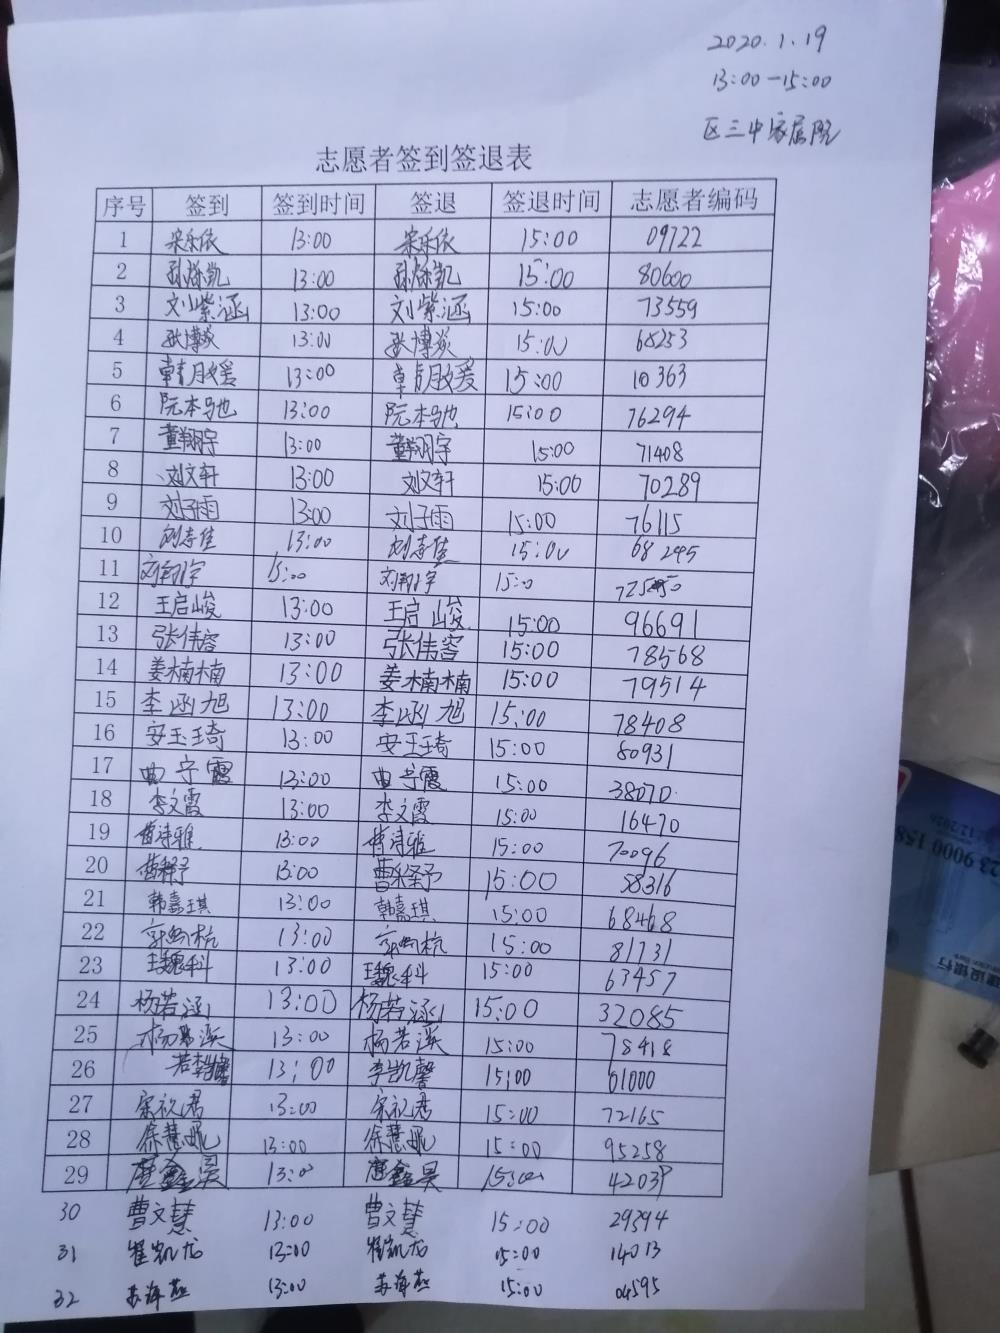 2020.1.19
13:00—15:00
区三中家属院
志愿者签到签退表
序号 签到 签到时间 签退 签退时间 志愿者编码
1 宋乐依 13:00 宋乐依 15:00 09722
2 孙烁凯 13:00 孙烁凯 15:00 80600
3 刘紫涵 13:00 刘紫涵 15:00 73559
4 张博焱 13:00 张博焱 15:00 68253
5 13:00 15:00 10363
6 阮本驰 13:00 阮本驰 15:00 76294
7 董翔宇 13:00 董翔宇 15:00 71408
8 刘文轩 13:00 刘文轩 15:00 70289
9 刘子雨 13:00 刘子雨 15:00 76115
10 13:00 15:00 68245
11 刘翔宇 刘翔宇 15:00
12 王启峻 13:00 王启峻 15:00 96691
13 张伟容 13:00 张伟容 15:00 78568
14 姜楠楠 13:00 姜楠楠 15:00 79514
15 李函旭 13:00 李函旭 15:00 78408
16 安玉琦 13:00 安玉琦 15:00 80931
17 曲宁霞 13:00 曲宁霞 15:00 38070
18 李文霞 13:00 李文霞 15:00 16470
19 曹诗雅 13:00 曹诗雅 15:00 70096
20 13:00 15:00 58316
21 韩嘉琪 13:00 韩嘉琪 15:00 68468
22 13:00 15:00 81731
23 王魏科 13:00 王魏科 15:00 63457
24 杨若涵 13:00 杨若涵 15:00 32085
25 13:00 杨若溪 15:00 78418
26 13:00 李凯馨 15:00 61000
27 宋祝君 13:00 宋祝君 15:00 72165
28 13:00 15:00 95258
29 13:00 15:00 42039
30 曹文慧 13:00 曹文慧 15:00 29394
31 崔凯龙 13:00 崔凯龙 15:00 14013
32 苏海燕 13:00 苏海燕 15:00 04595
23 9000 158
12/2026
建设银行